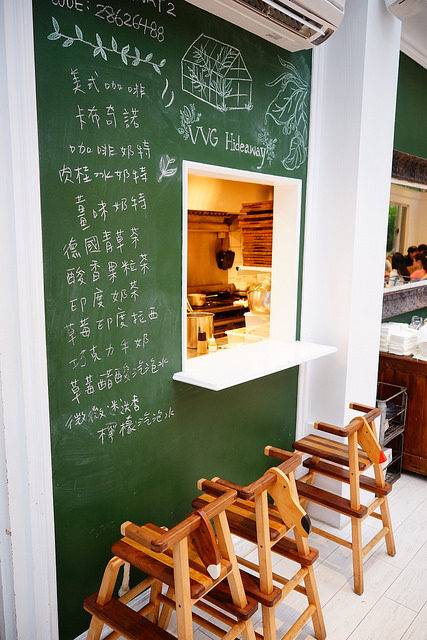 CODE: 28626488
VVG Hideaway
美式咖啡
卡布奇諾
咖啡奶特
肉桂冰奶特
薑味奶特
德國青草茶
酸香果粒茶
印度奶茶
草莓印度拉西
巧克力牛奶
草莓醋酸汽泡水
微微迷迭香
檸檬汽泡水